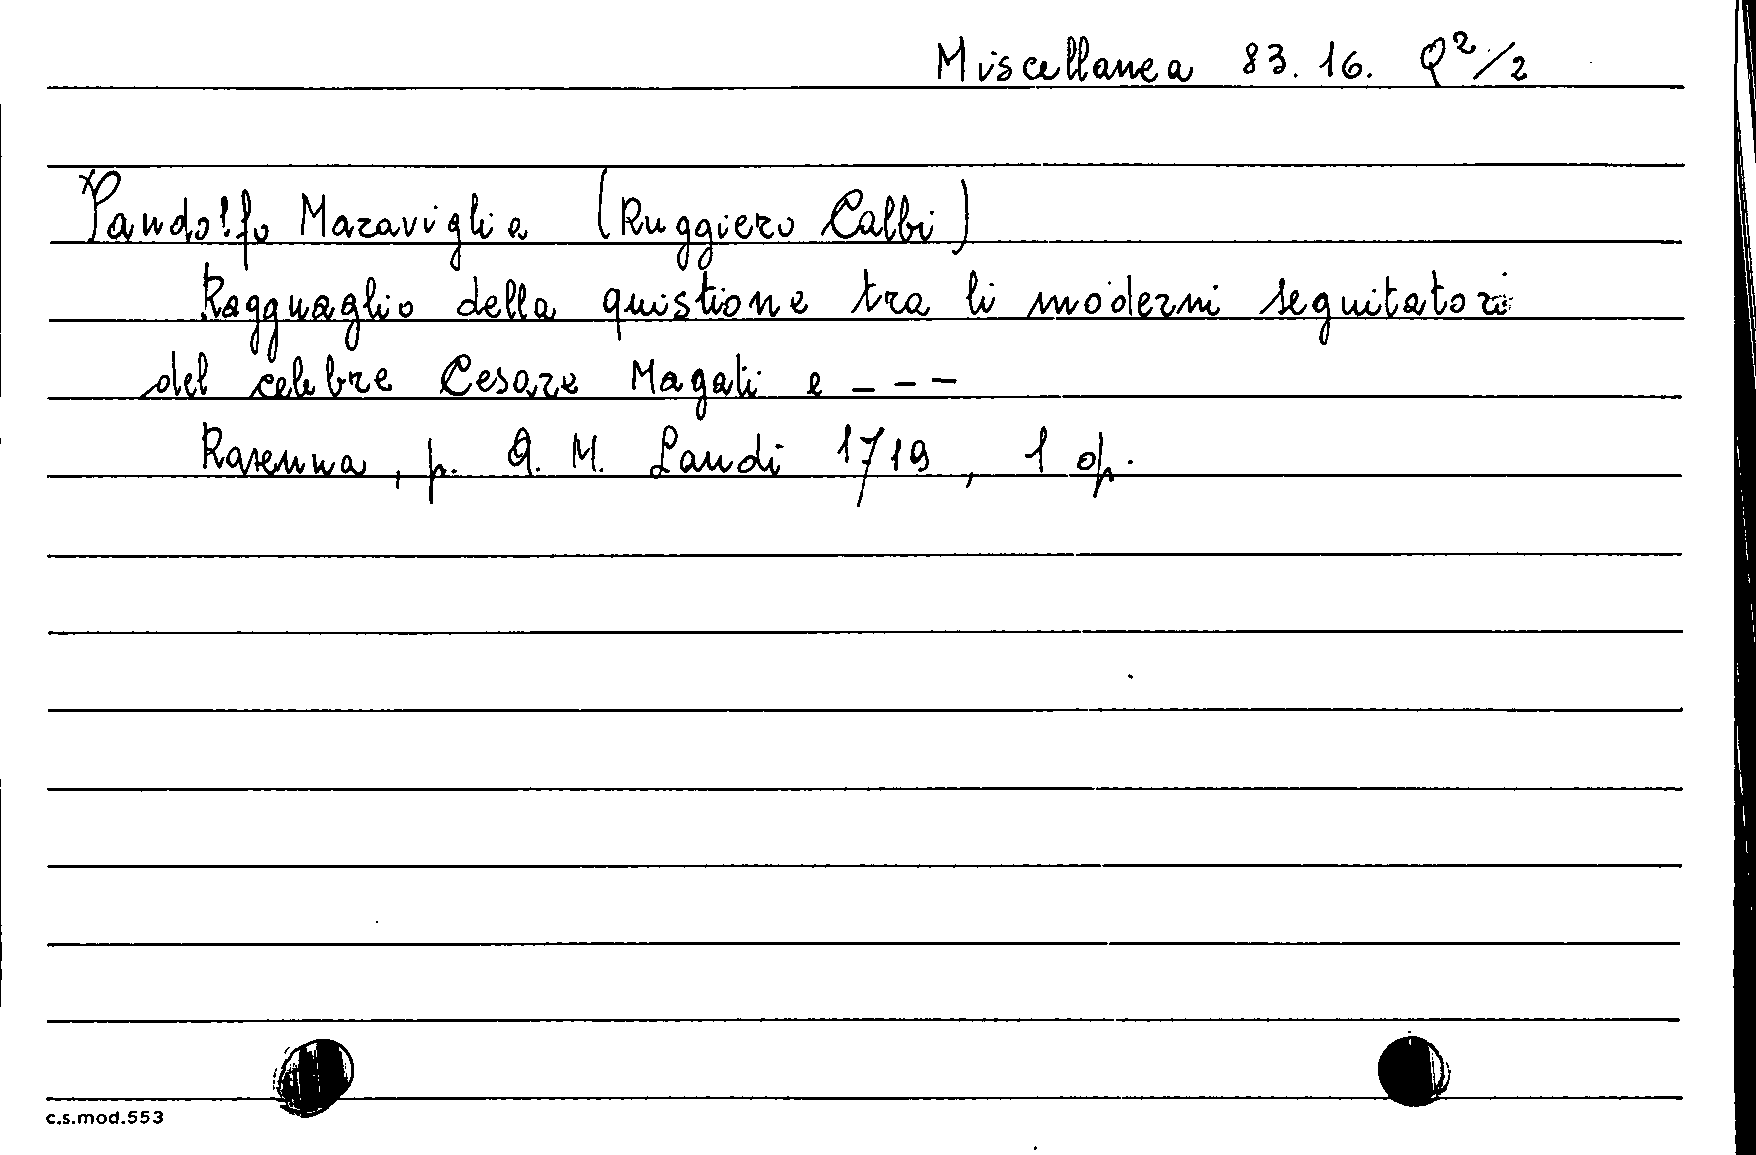 Miscellanea 83. 16. Q²/2
Pandolfo Maraviglia (Ruggiero Calbi)
Ragguaglio della quistione tra li moderni seguitatori
del celebre Cesare Magati e - - -
Ravenna, p. A. M. Landi 1719, 1 op.
c.s.mod.553